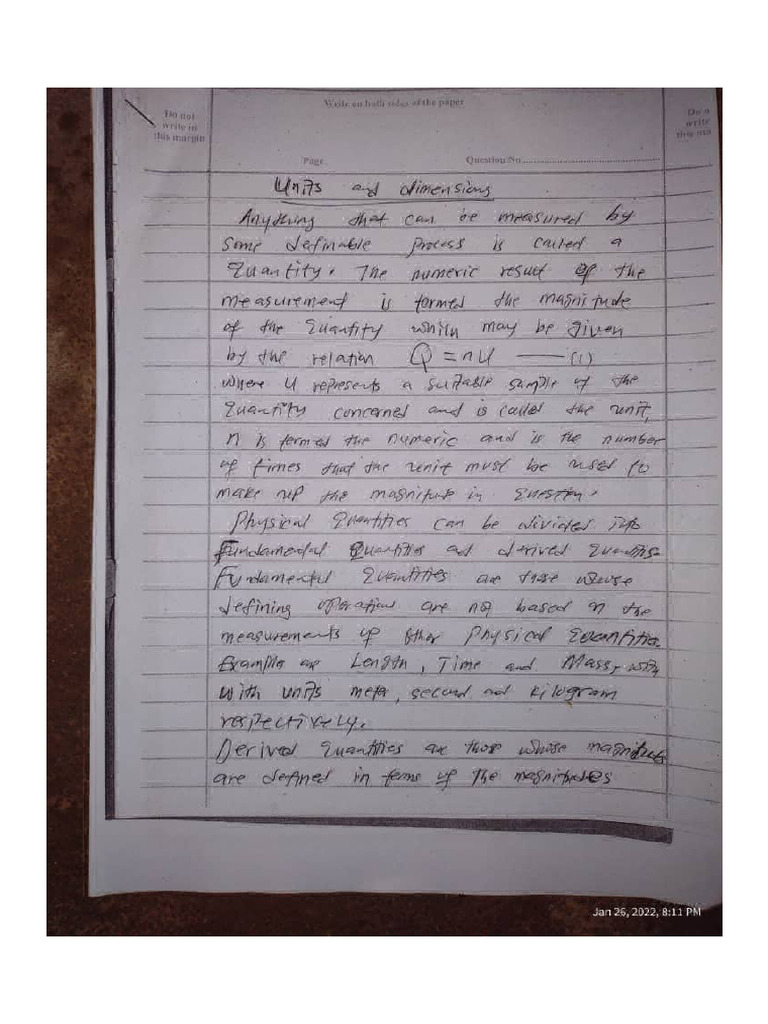 Write on both sides of the paper
Do not
write in
this margin
Do n
write
this ma
Page
Question No
Units and dimensions
Anything that can be measured by
some definable process is called a
Quantity. The numeric result of the
measurement is termed the magnitude
of the Quantity which may be given
by the relation Q = nU —— (1)
where U represents a suitable sample of the
Quantity concerned and is called the unit,
n is termed the numeric and is the number
of times that the unit must be used to
make up the magnitude in question.
Physical Quantities can be divided into
Fundamental Quantities and derived Quantities
Fundamental Quantities are those whose
defining operations are not based on the
measurements of other Physical Quantities.
Examples are Length, Time and Mass,
with units meter, second and kilogram
respectively.
Derived Quantities are those whose magnitudes
are defined in terms of the magnitudes
Jan 26, 2022, 8:11 PM